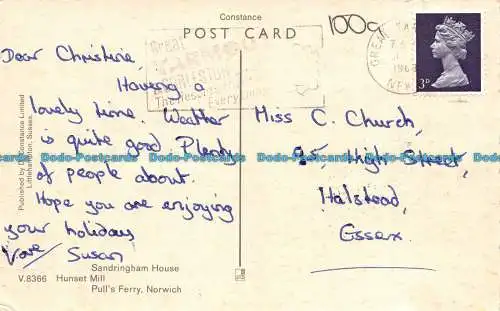 Constance
POST CARD
100a
Great
YARMOUTH
GORLESTON
The Resorts
Everyone
GREAT YAR
1968
3D
Dear Christine
Having a
lovely time. Weather
is quite good. Plenty
of people about.
Hope you are enjoying
your holidays
Love Susan
Miss C. Church,
High Street,
Halstead,
Essex.
Dodo-Postcards Dodo-Postcards Dodo-Postcards Dodo-Postcards Dodo-Postcards
Published by Constance Limited
Littlehampton, Sussex.
Sandringham House
V.8366 Hunset Mill
Pull's Ferry, Norwich